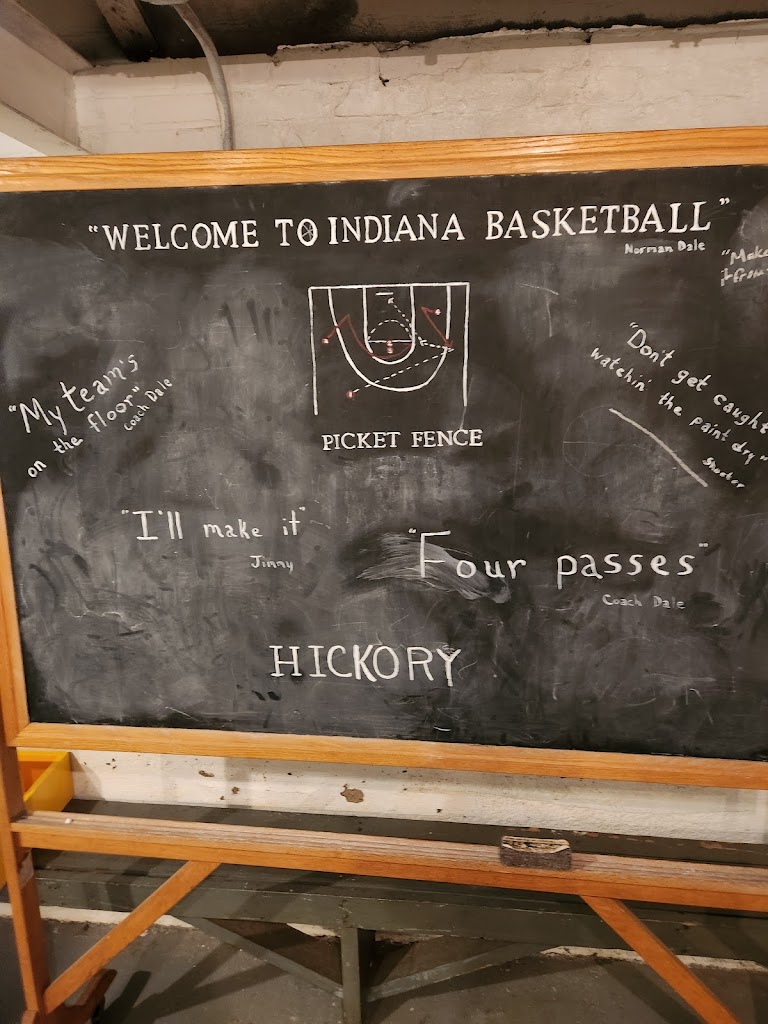 "WELCOME TO INDIANA BASKETBALL"
Norman Dale
"Make
it from
PICKET FENCE
"My team's
on the floor"
Coach Dale
"Don't get caught
watchin' the paint dry"
Shooter
"I'll make it"
Jimmy
"Four passes"
Coach Dale
HICKORY